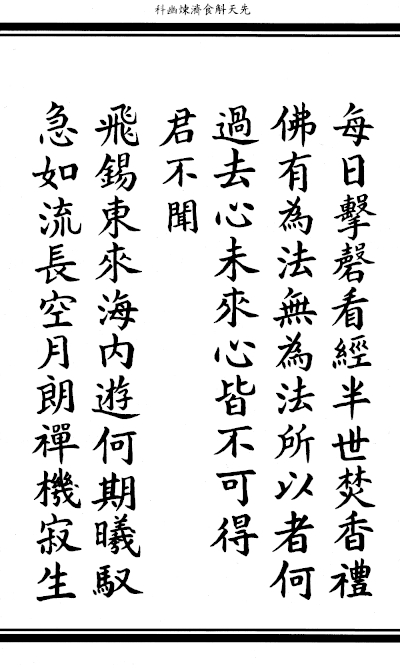 先天斛食濟煉幽科
每日擊磬看經半世焚香禮
佛有為法無為法所以者何
過去心未來心皆不可得
君不聞
飛錫東來海内遊何期曦馭
急如流長空月朗禪機寂生